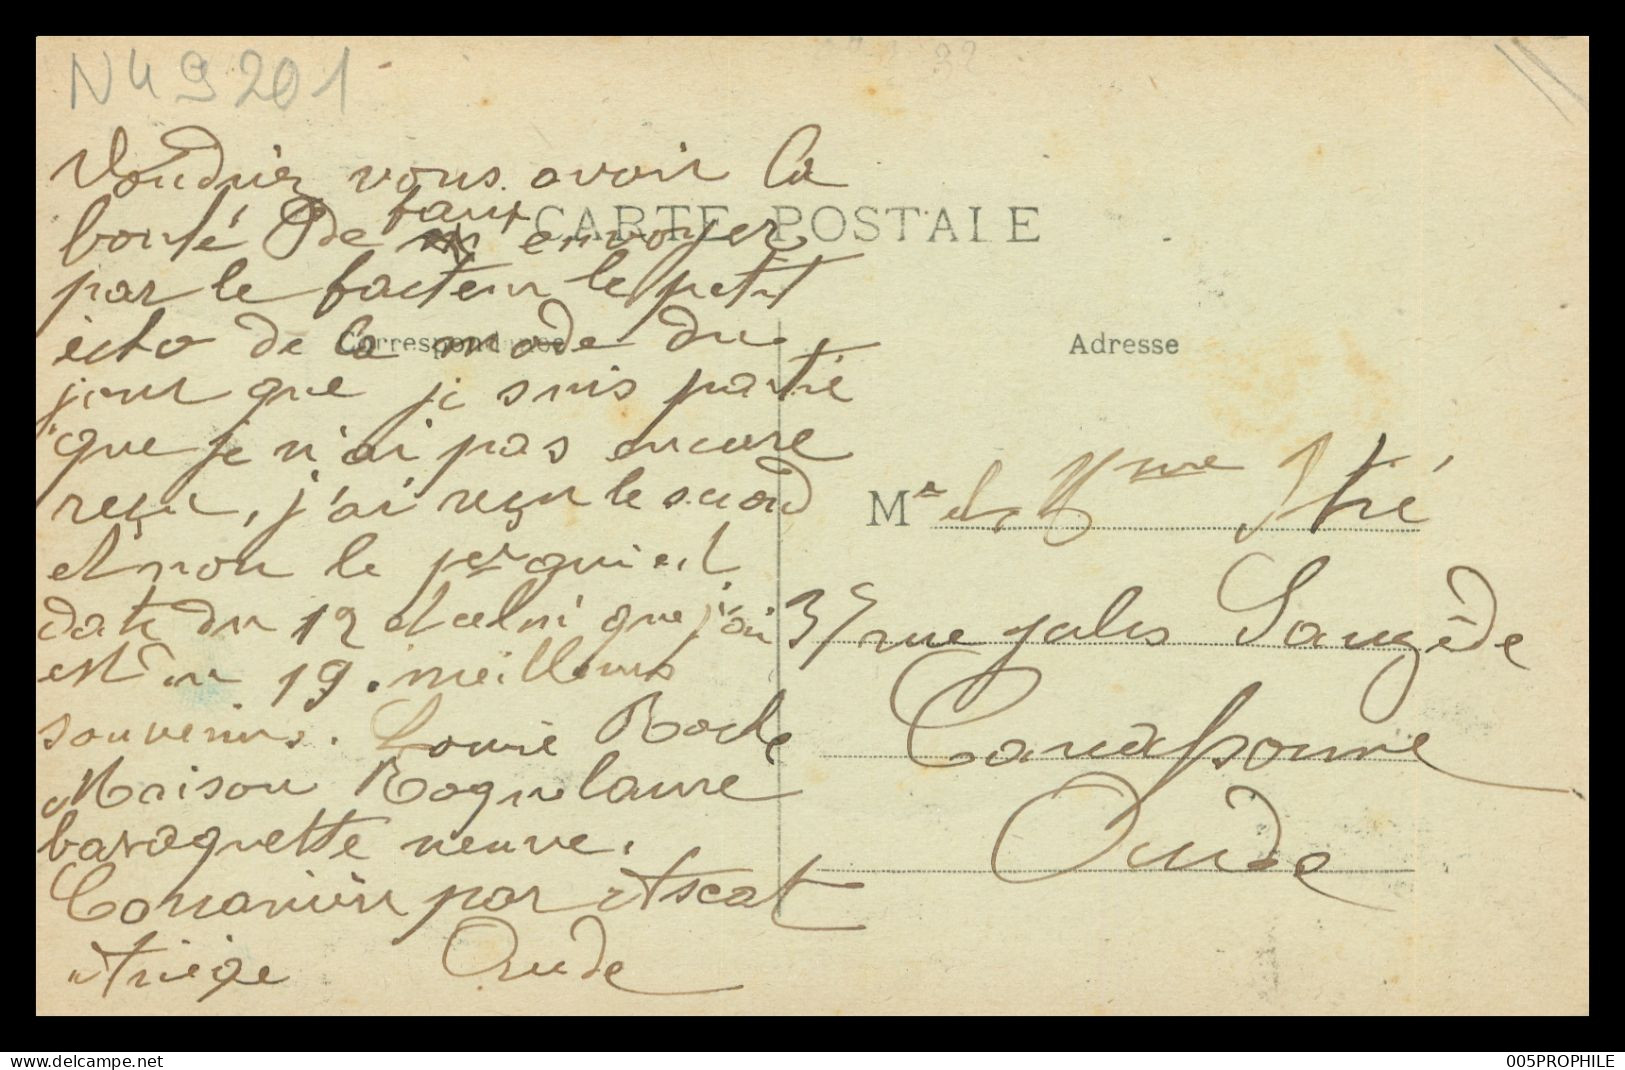 N49201
Voudriez vous avoir la
bonté de faire envoyer
par le facteur le petit
écho de la mode du
jour que je suis partie
que je n'ai pas encore
reçu, j'ai reçu le second
et non le 1er qui est
daté du 12 et celui que j'ai
est du 19. meilleurs
souvenirs. Louise Roche
Maison Roquelaure
baraquette neuve.
par Ascat
Ariège Aude
CARTE POSTALE
Correspondance
Adresse
M et Mme
35 rue jules Sauzède
Carcassonne
Aude
005PROPHILE